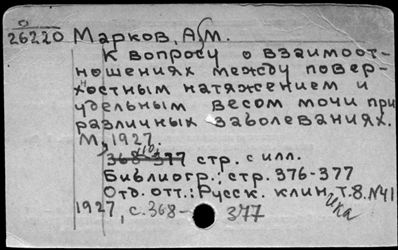 26220 Марков, А.М.
К вопросу о взаимоот-
ношениях между повер-
хостным натяжением и
удельным весом мочи при
различных заболеваниях.
М., 1927.
368-377 стр. с илл.
Библиогр.: стр. 376-377
Отд. отт.: Русск. клиника, т.8. №41
1927, с. 368- 377